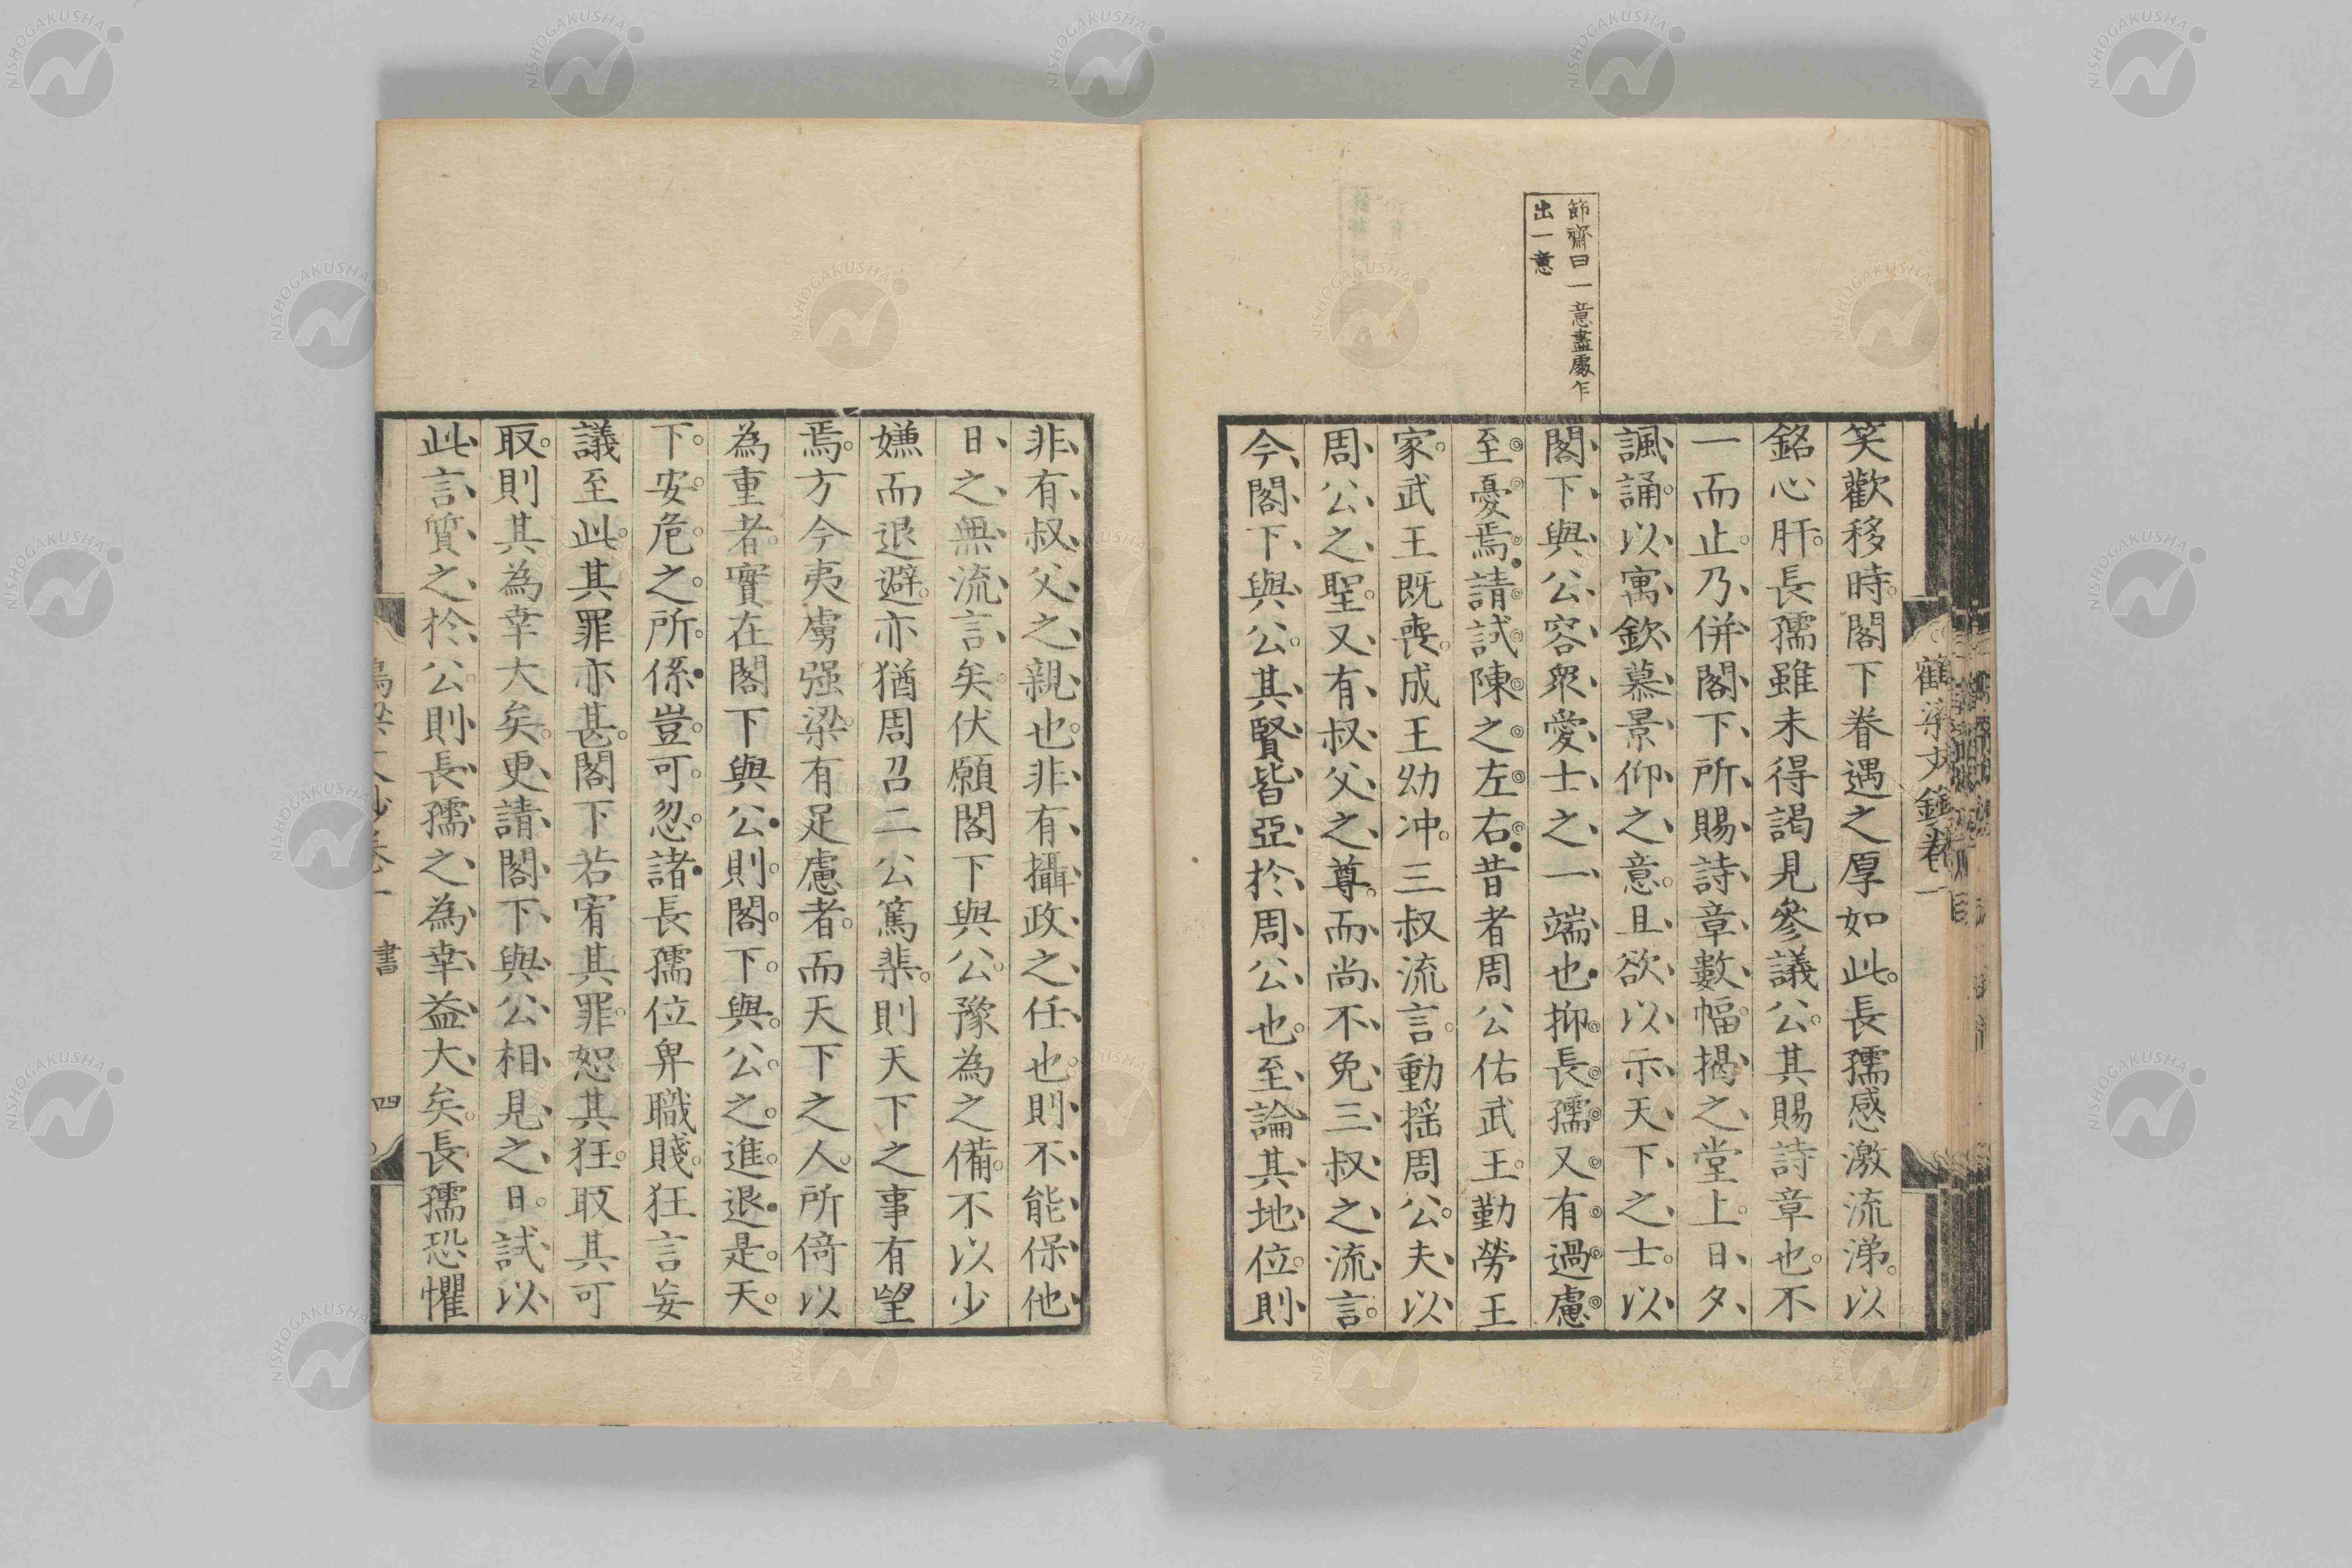 節齋曰一意盡處乍
出一意
笑歡移時。閣下眷遇之厚如此。長孺感激流涕。以
銘心肝。長孺雖未得謁見參議公。其賜詩章也。不
一而止。乃併閣下所賜詩章數幅。揭之堂上。日夕
諷誦。以寓欽慕景仰之意。且欲以示天下之士。以
閣下與公容眾愛士之一端也。抑長孺又有過慮
至憂焉。請試陳之左右。昔者周公佑武王。勤勞王
家。武王既喪。成王幼冲。三叔流言。動搖周公。夫以
周公之聖。又有叔父之尊。而尚不免三叔之流言。
今閣下與公。其賢皆亞於周公也。至論其地位。則
非有叔父之親也。非有攝政之任也。則不能保他
日之無流言矣。伏願閣下與公。豫為之備。不以少
嫌而退避。亦猶周召二公篤棐。則天下之事有望
焉。方今夷虜强梁。有足慮者。而天下之人。所倚以
為重者。實在閣下與公。則閣下與公之進退。是天
下安危之所係。豈可忽諸。長孺位卑職賤。狂言妄
議至此。其罪亦甚。閣下若宥其罪。恕其狂。取其可
取。則其為幸大矣。更請閣下與公相見之日。試以
此言質之於公。則長孺之為幸益大矣。長孺恐懼
書
四
NISHOGAKUSHA